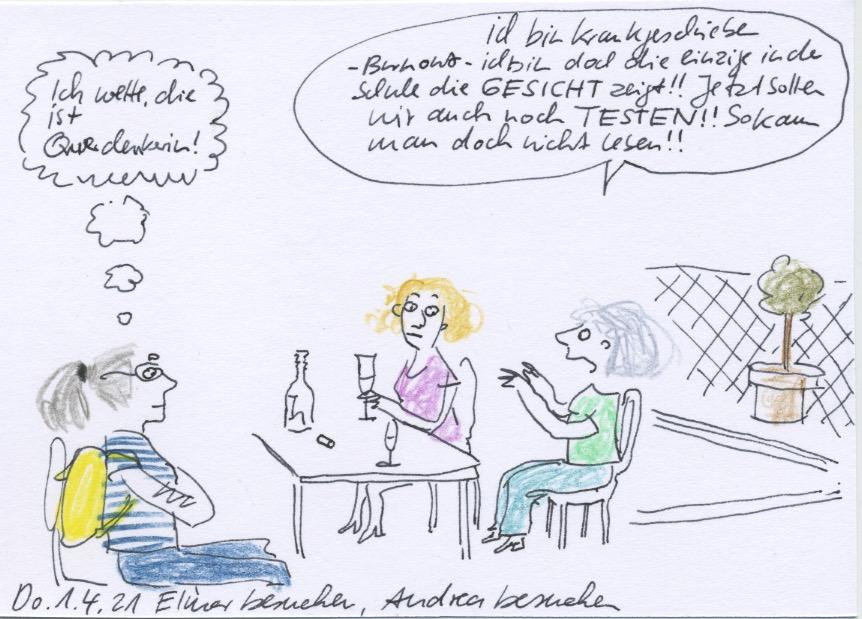 Ich wette, die
ist
Querdenkerin!
ich bin krankgeschrieben
-Burnout- ich bin doch die einzige in der
Schule die GESICHT zeigt!! Jetzt sollen
wir auch noch TESTEN!! So kann
man doch nicht leben!!
Do. 1.4.21 Elmar besuchen, Andrea besuchen